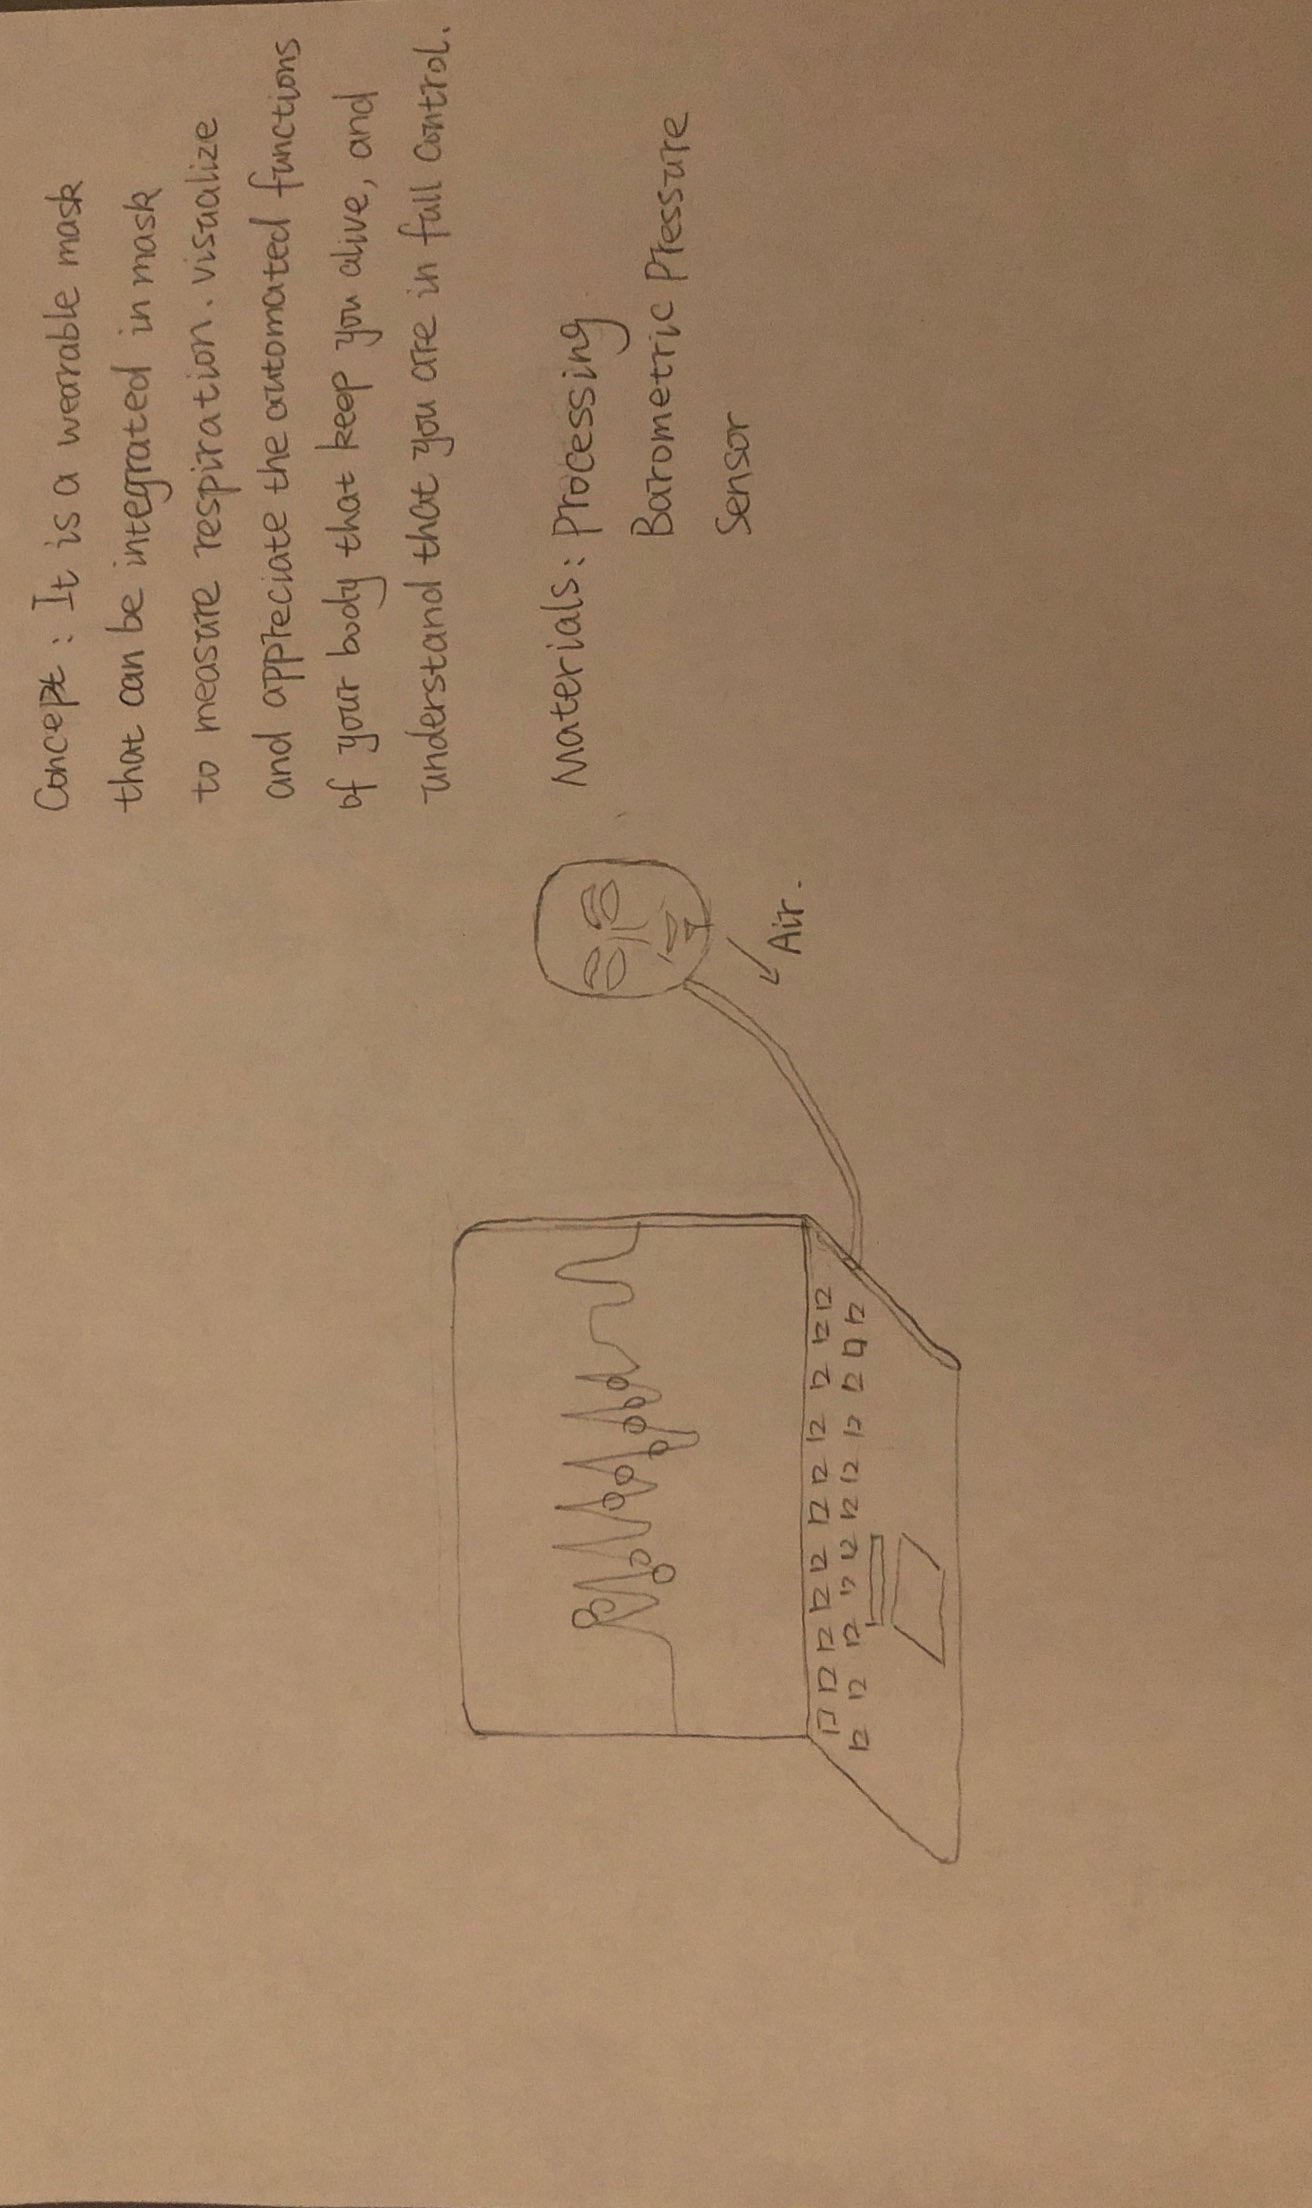 Concept : It is a wearable mask
that can be integrated in mask
to measure respiration. visualize
and appreciate the automated functions
of your body that keep you alive, and
understand that you are in full control.
Materials : Processing
Barometric Pressure
Sensor
Air.